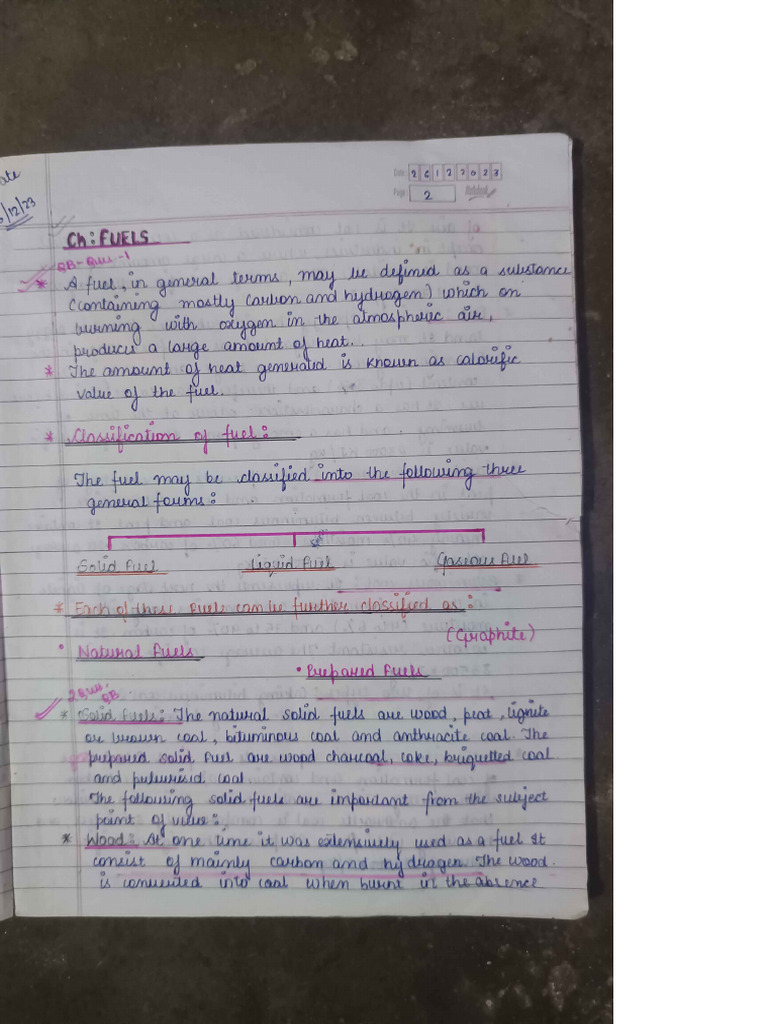 ate
Date 26122023
/12/23
Page 2
Ch: FUELS
QB-Que-1
* A fuel, in general terms, may be defined as a substance
(containing mostly carbon and hydrogen) which on
burning with oxygen in the atmospheric air,
produces a large amount of heat...
* The amount of heat generated is known as calorific
value of the fuel.
* Classification of fuel:
The fuel may be classified into the following three
general forms:
Solid Fuel Liquid Fuel Gaseous Fuel
* Each of these fuels can be further classified as:
(Graphite)
• Natural fuels
• Prepared Fuels
2 Que. QB
* Solid fuels: The natural solid fuels are wood, peat, lignite
or brown coal, bituminous coal and anthracite coal. The
prepared solid fuel are wood charcoal, coke, briquetted coal
and pulverised coal
The following solid fuels are important from the subject
point of view:
* Wood: At one time it was extensively used as a fuel It
consist of mainly carbon and hydrogen. The wood
is converted into coal when burnt in the absence